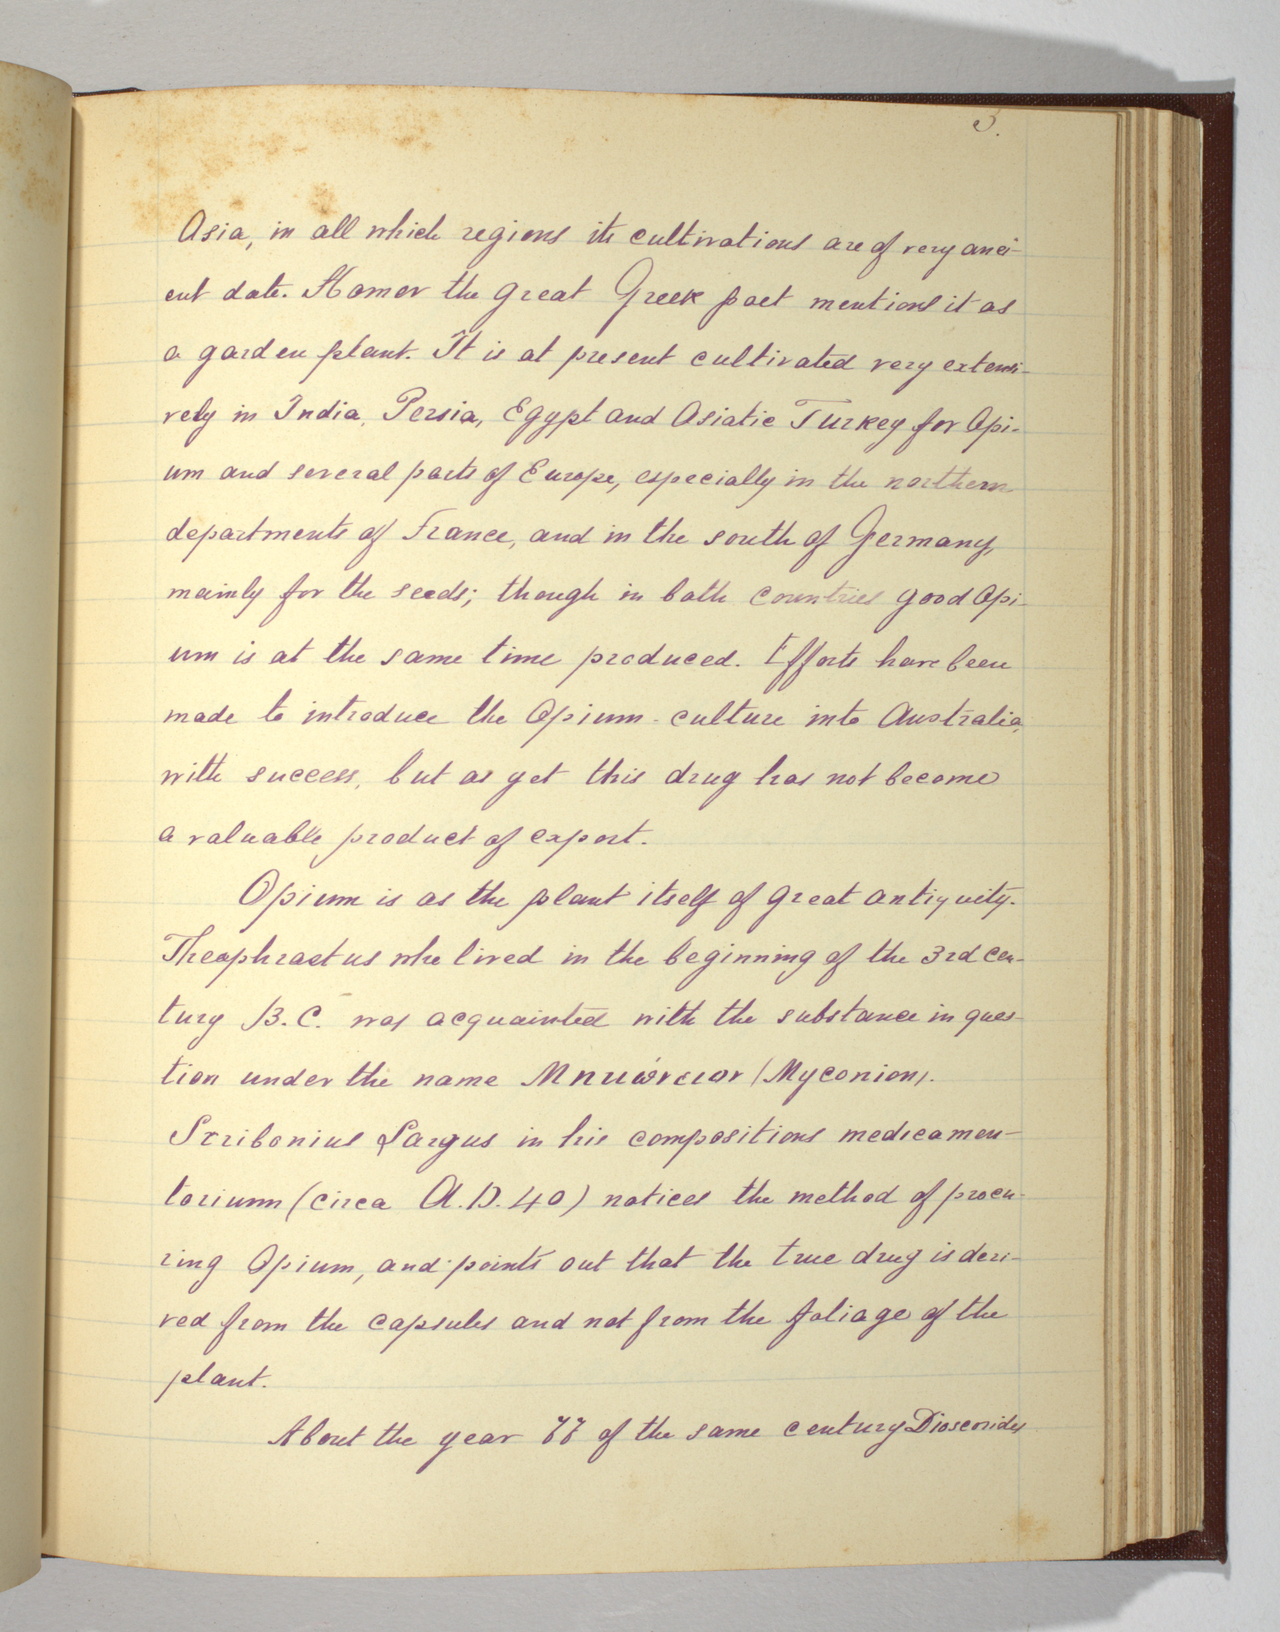 3.
Asia, in all which regions its cultivations are of very anci-
ent date. Homer the great Greek poet mentions it as
a garden plant. It is at present cultivated very extensi-
vely in India, Persia, Egypt and Asiatic Turkey for Opi-
um and several parts of Europe, especially in the northern
departments of France, and in the south of Germany,
mainly for the seeds; though in both countries good Opi-
um is at the same time produced. Efforts have been
made to introduce the Opium-culture into Australia,
with success, but as yet this drug has not become
a valuable product of export.
Opium is as the plant itself of great antiquity.
Theophrastus who lived in the beginning of the 3rd cen-
tury B.C. was acquainted with the substance in ques-
tion under the name (Myconion).
Scribonius Largus in his compositions medicamen-
torium (circa A.D. 40) notices the method of procu-
ring Opium, and points out that the true drug is deri-
ved from the capsules and not from the foliage of the
plant.
About the year 77 of the same century Dioscorides